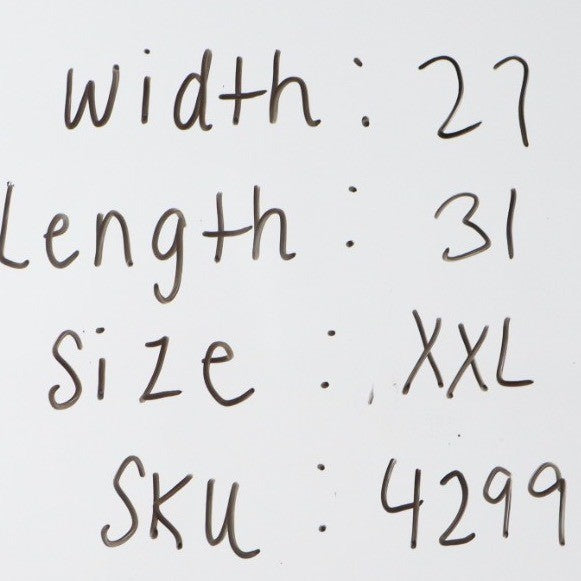 width: 27
Length: 31
Size: XXL
SKU: 4299